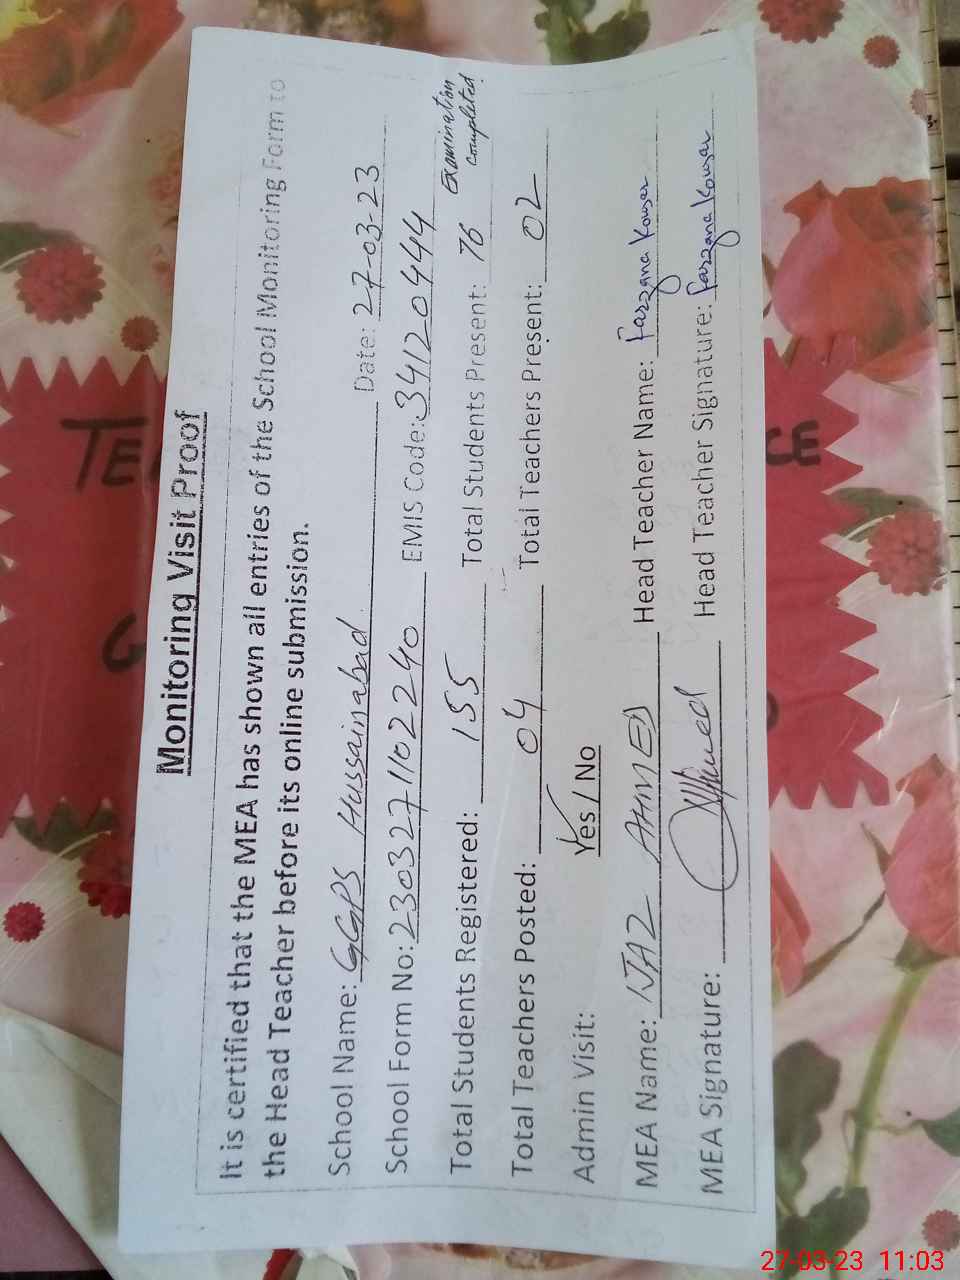 Monitoring Visit Proof
It is certified that the MEA has shown all entries of the School Monitoring Form to
the Head Teacher before its online submission.
School Name: GGPS Hussainabad. Date: 27-03-23
School Form No: 2303271102240 EMIS Code: 34120444
Total Students Registered: 155 Total Students Present: 76 Examination completed.
Total Teachers Posted: 04 Total Teachers Present: 02
Admin Visit: Yes / No
MEA Name: AHMED Head Teacher Name: Farzana Kousar
MEA Signature: Ahmed Head Teacher Signature: Farzana Kousar
27-03-23 11:03